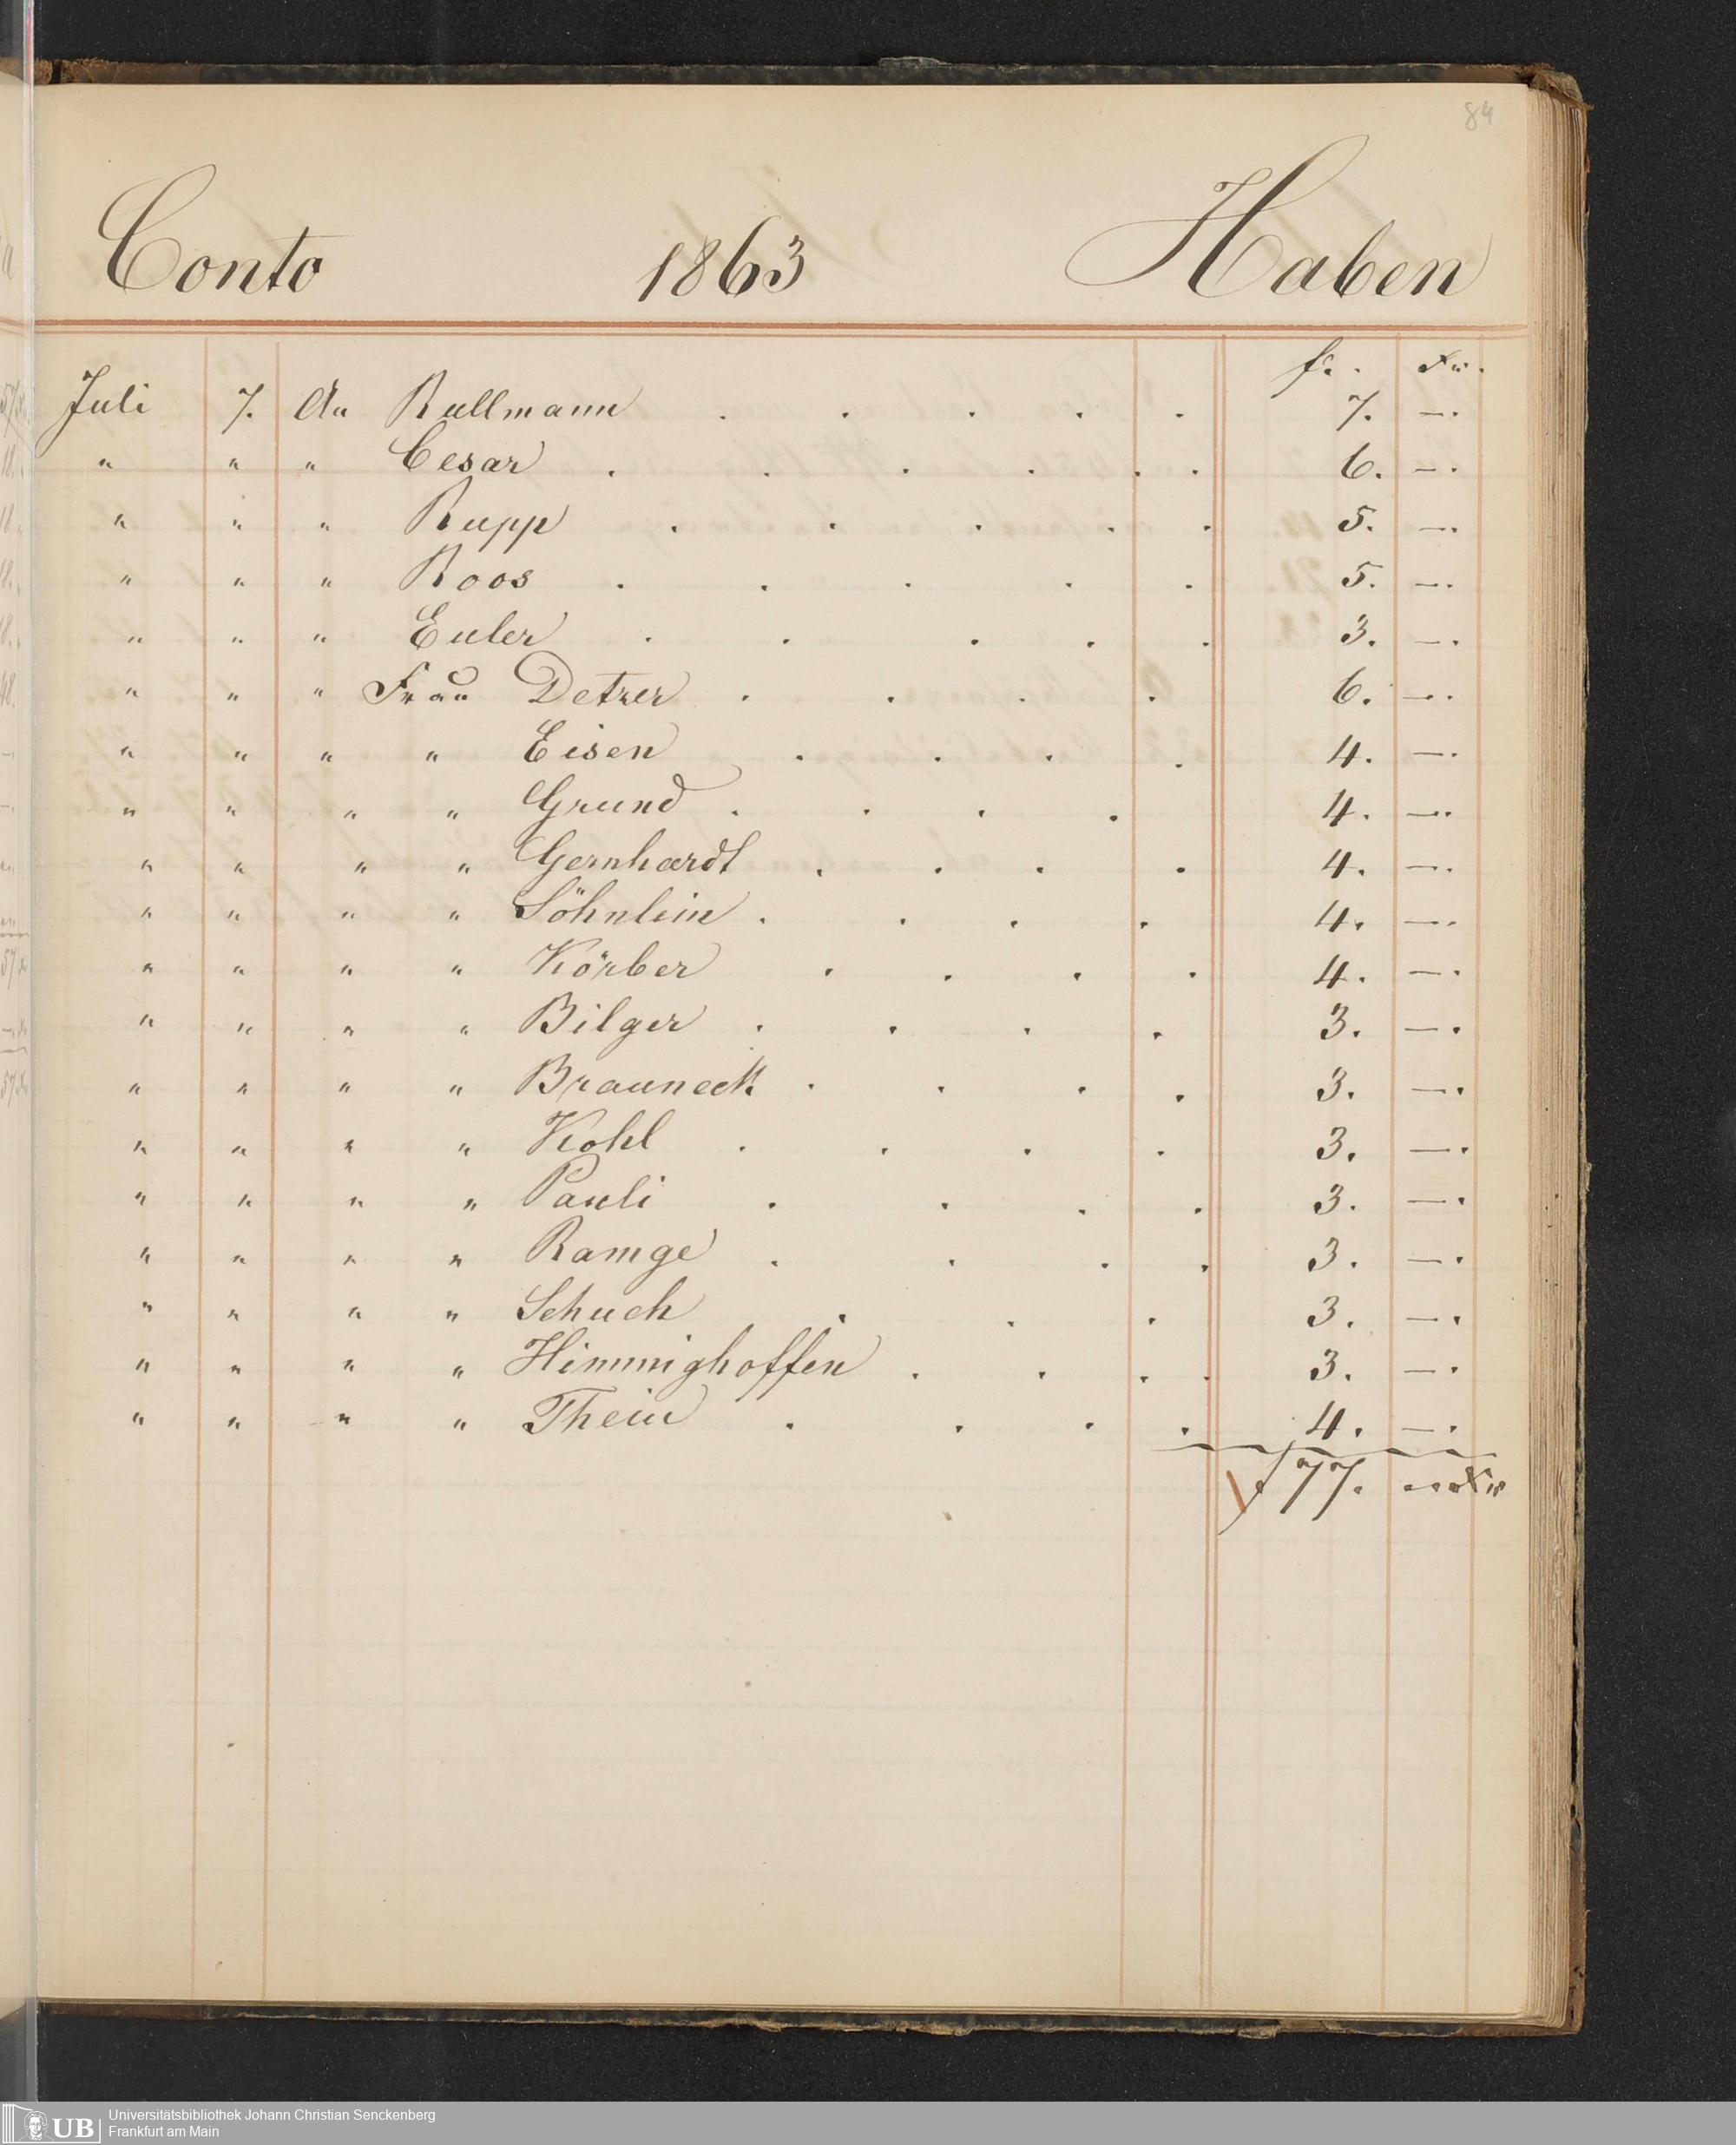 84
Conto 1863 Haben
f. . Xr.
Juli 7. An Rullmann . . . . . 7. —.
" " " Cesar . . . . . . 6. —.
" " " Rupp . . . . . 5. —.
" " " Roos . . . . . 5. —.
" " " Euler . . . . . 3. —.
" " " Frau Detzer . . . . 6. —.
" " " " Eisen . . . . 4. —.
" " " " Grund . . . . 4. —.
" " " " Gernhardt . . . . 4. —.
" " " " Söhnlein . . . . 4. —.
" " " " Körber . . . . 4. —.
" " " " Bilger . . . . 3. —.
" " " " Brauneck . . . . 3. —.
" " " " Kohl . . . . 3. —.
" " " " Pauli . . . . 3. —.
" " " " Ramge . . . . 3. —.
" " " " Schuch . . . 3. —.
" " " " Himmighoffen . . . . 3. —.
" " " " Thein . . . . 4. —.
f 77. — Xr
UB Universitätsbibliothek Johann Christian Senckenberg
Frankfurt am Main